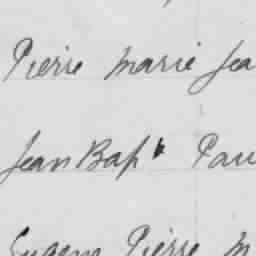 Pierre Marie Jea
Jean Bapt Pau
Eugem Pierre M